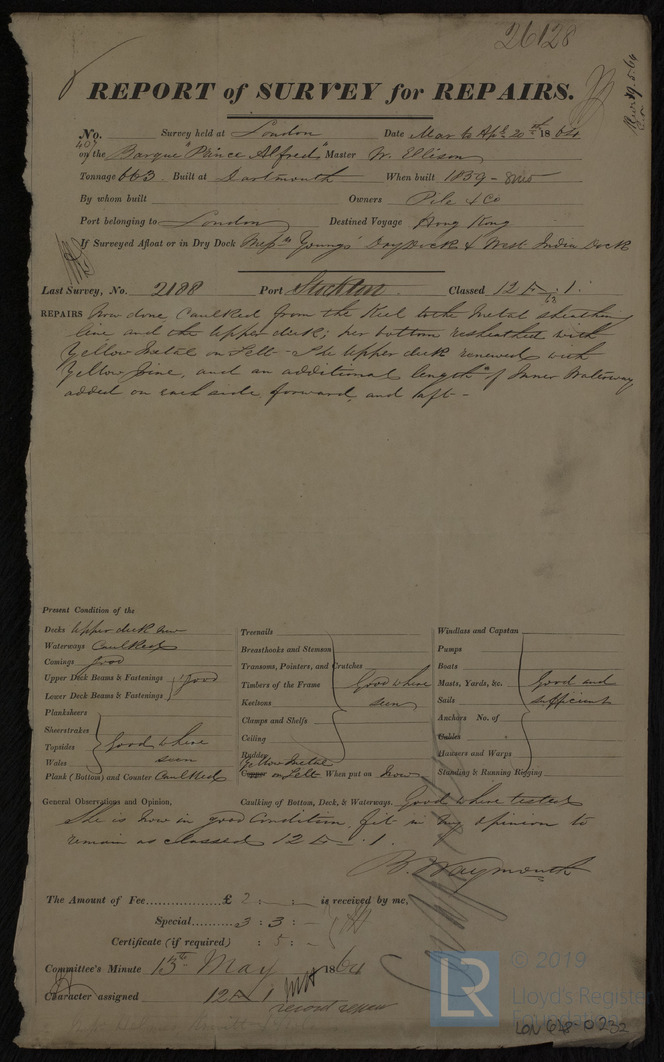 26128
REPORT of SURVEY for REPAIRS.
No. 407 Survey held at London Date Mar 6 Apl. 20th 1864
on the Barque "Prince Alfred" Master W. Ellison
Tonnage 663 Built at Dartmouth When built 1839 - 8mo
By whom built Owners Pile & Co
Port belonging to London Destined Voyage Hong Kong
If Surveyed Afloat or in Dry Dock Messrs Young's Dry Dock & West India Dock
Last Survey, No. 2188 Port Stockton. Classed 12 1.
63
REPAIRS Now done Caulked from the Keel to the Metal sheathing
line and the Upper deck; her bottom resheathed with
Yellow Metal on Felt - The Upper deck renewed with
Yellow Pine, and an additional length of Inner Waterway
added on each side forward and aft -
Present Condition of the
Decks Upper deck new
Waterways Caulked
Comings good
Upper Deck Beams & Fastenings
Lower Deck Beams & Fastenings
good
Planksheers
Sheerstrakes
Topsides
Wales
good where seen
Plank (Bottom) and Counter Caulked
Treenails
Breasthooks and Stemson
Transoms, Pointers, and Crutches
Timbers of the Frame
Keelsons
Clamps and Shelfs
Ceiling
Rudder
Good where seen
Yellow Metal
Copper on Felt When put on Now
Windlass and Capstan
Pumps
Boats
Masts, Yards, &c.
Sails
Anchors No. of
Cables
Hausers and Warps
Standing & Running Rigging
Good and sufficient
General Observations and Opinion, Caulking of Bottom, Deck, & Waterways. Good where tested
She is now in good Condition fit in my opinion to
remain as classed 12 1.
B. Waymouth
The Amount of Fee £ 2 : - : - is received by me,
Special 3 : 3 : -
Certificate (if required) : 5 : -
Committee's Minute 13th May 1864
Character assigned 12 1
© 2019
LR
Lloyd's Register
Foundation
LON 618-0232